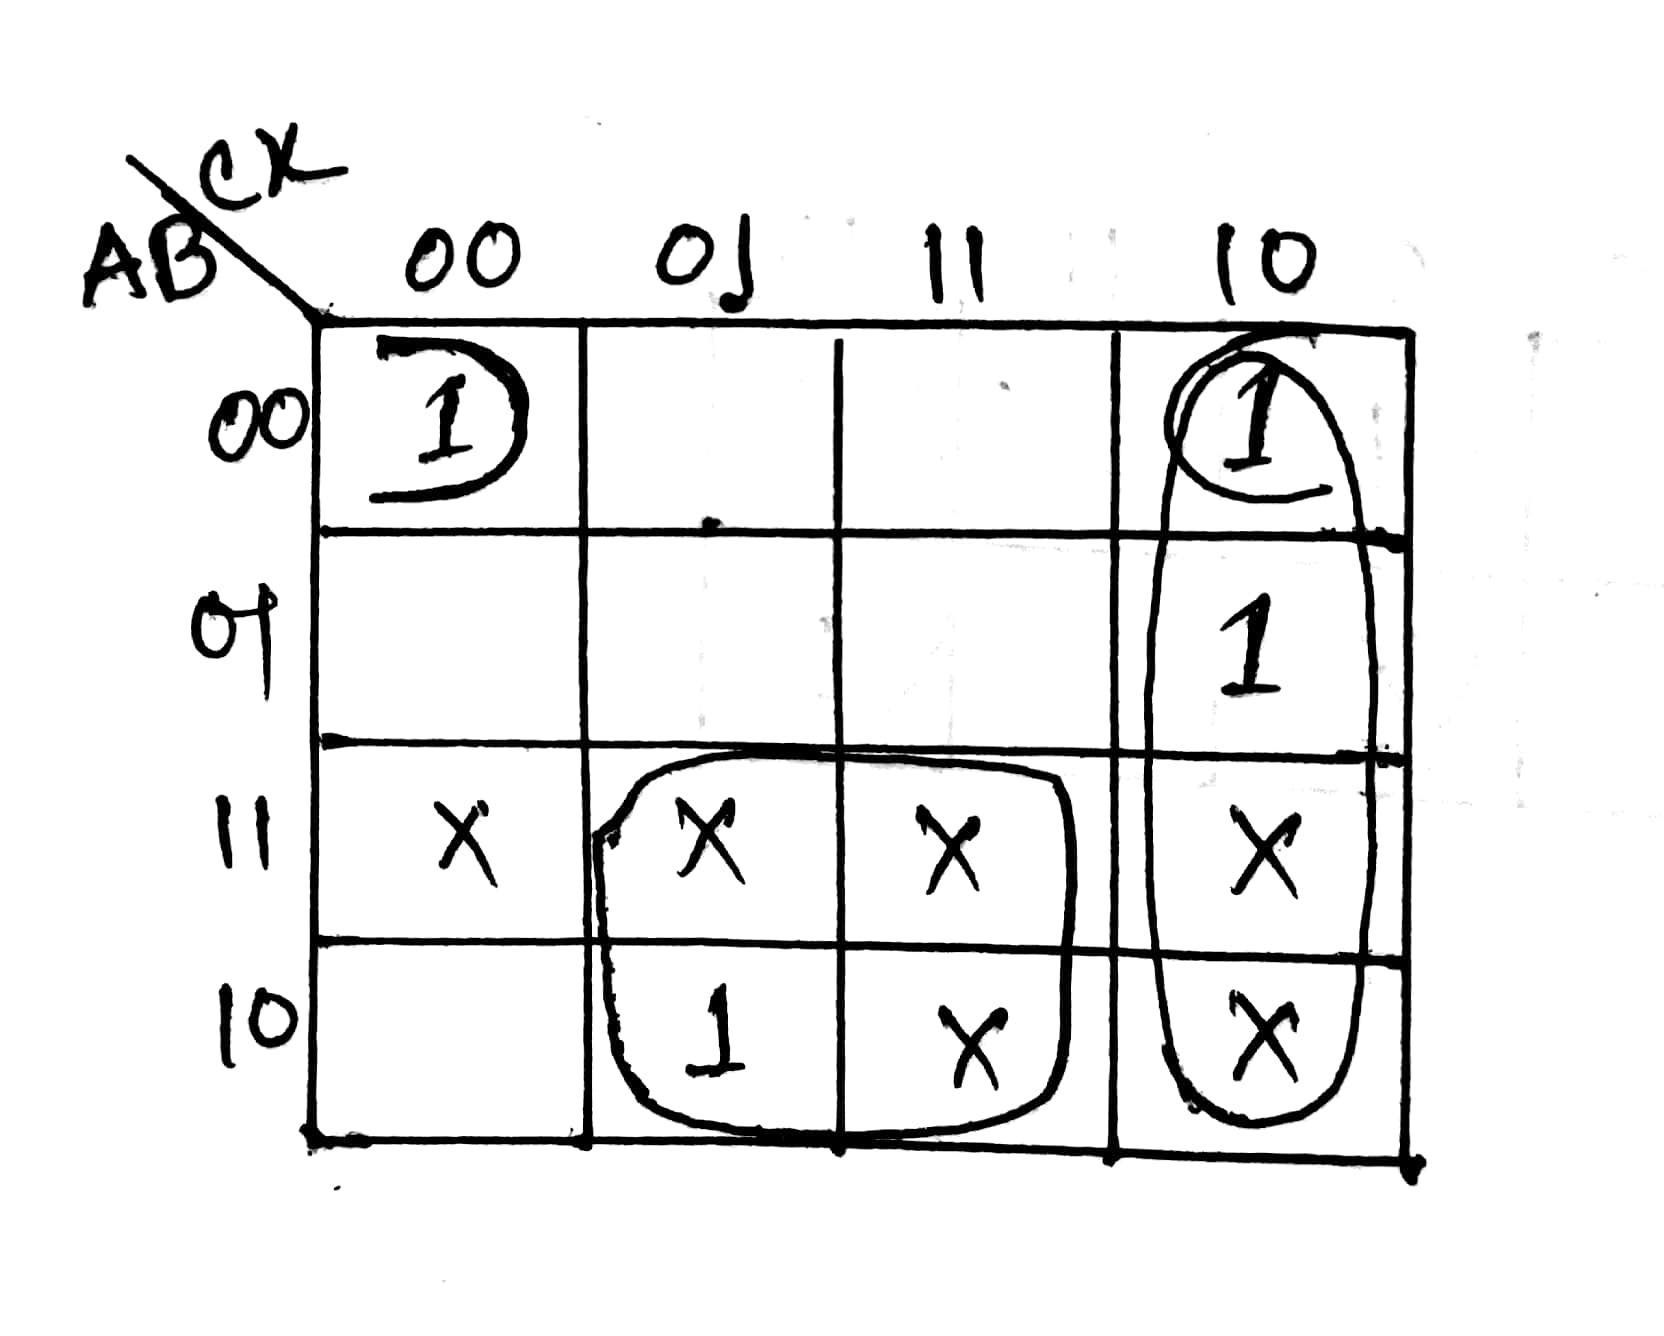 CX
AB
00 01 11 10
00 1 1
01 1
11 X X X X
10 1 X X